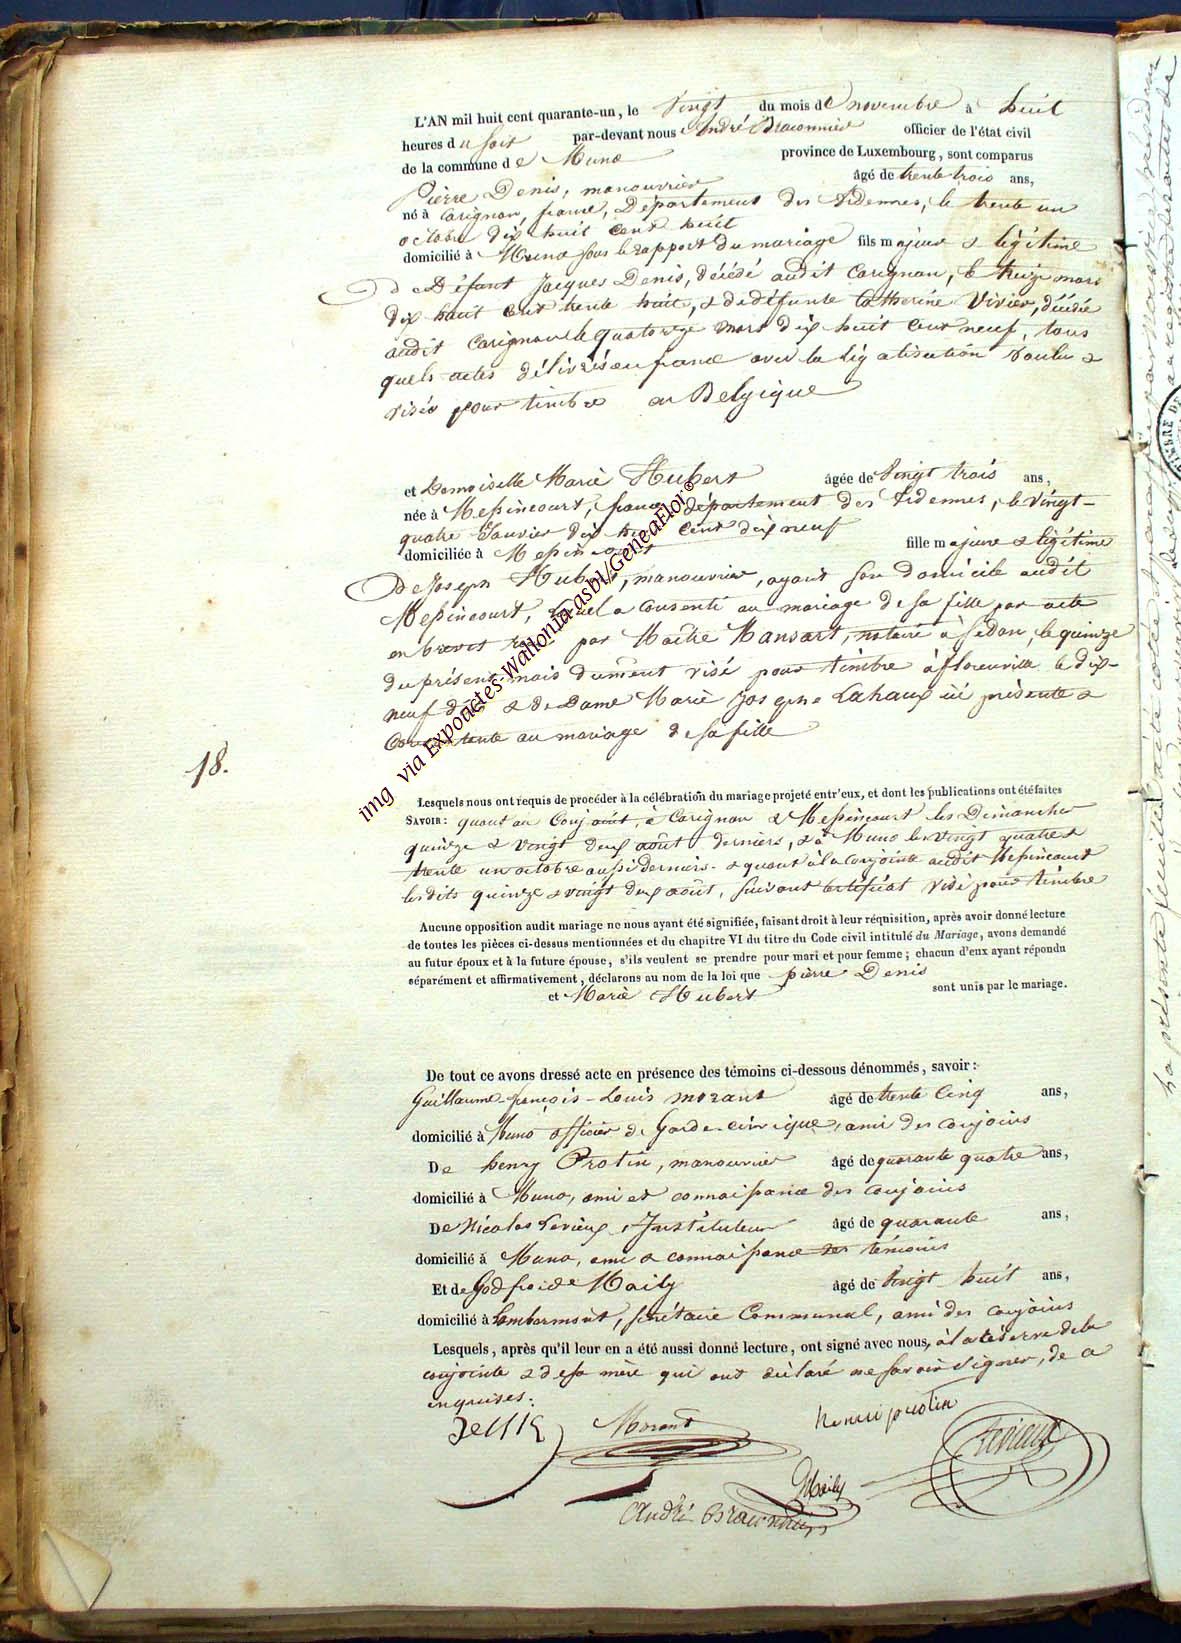 L'AN mil huit cent quarante-un, le Vingt du mois de novembre à huit
heures du soir par-devant nous André Braconnier officier de l'état civil
de la commune de Muno province de Luxembourg, sont comparus
Pierre Denis, manouvrier âgé de trente trois ans,
né à Carignan, france, Département des Ardennes, le trente un
octobre dix huit cent huit
domicilié à Muno sous le rapport du mariage fils majeur & légitime
de Défunt Jacques Denis, décédé audit Carignan, le treize mars
dix huit cent trente huit, & de défunte Catherine Vivier, décédée
audit Carignan le quatorze mars dix huit cent neuf, tous
quels actes délivrés en france avec la légalisation voulue &
visés pour timbre en Belgique
et Demoiselle Marie Hubert âgée de Vingt trois ans,
née à Messincourt, france, département des Ardennes, le vingt-
quatre Janvier dix huit cent dix neuf
domiciliée à Messincourt fille majeure & légitime
De Joseph Hubert, manouvrier, ayant son domicile audit
Messincourt, lequel a consenti au mariage de sa fille par acte
en brevet par Maître Mansart, notaire à Sedan, le quinze
du présent mois dument visé pour timbre à florenville le dix-
neuf dito & de Dame Marie Josephe Lahaux ici présente &
Consentante au mariage de sa fille
18.
Lesquels nous ont requis de procéder à la célébration du mariage projeté entr'eux, et dont les publications ont été faites
SAVOIR: quant au Conjoint, à Carignan & Messincourt les Dimanches
quinze & vingt deux août derniers, & à Muno les Vingt quatre &
trente un octobre aussi derniers. & quant à la Conjointe audit Messincourt
lesdits quinze & vingt deux août, suivant certificat visé pour timbre
Aucune opposition audit mariage ne nous ayant été signifiée, faisant droit à leur réquisition, après avoir donné lecture
de toutes les pièces ci-dessus mentionnées et du chapitre VI du titre du Code civil intitulé du Mariage, avons demandé
au futur époux et à la future épouse, s'ils veulent se prendre pour mari et pour femme; chacun d'eux ayant répondu
séparément et affirmativement, déclarons au nom de la loi que pierre Denis
et Marie Hubert sont unis par le mariage.
De tout ce avons dressé acte en présence des témoins ci-dessous dénommés, savoir:
Guillaume-françois-Louis Morant âgé de trente cinq ans,
domicilié à Muno officier de Garde-civique, ami des conjoints
De henry Protin, manouvrier âgé de quarante quatre ans,
domicilié à Muno, ami et connaissance des conjoints
De Nicolas Levieux, Instituteur âgé de quarante ans,
domicilié à Muno, ami & connaissance des témoins
Et de Godfroide Maily âgé de Vingt huit ans,
domicilié à Lambermont, secrétaire Communal, ami des conjoins
Lesquels, après qu'il leur en a été aussi donné lecture, ont signé avec nous, à la réserve de la
conjointe & de sa mère qui ont déclaré ne savoir signer, de ce
enquises.
Morant henri protin Levieux
Maily
André Braconnier
img via Expoactes-Wallonia-asbl/GeneaFlor©